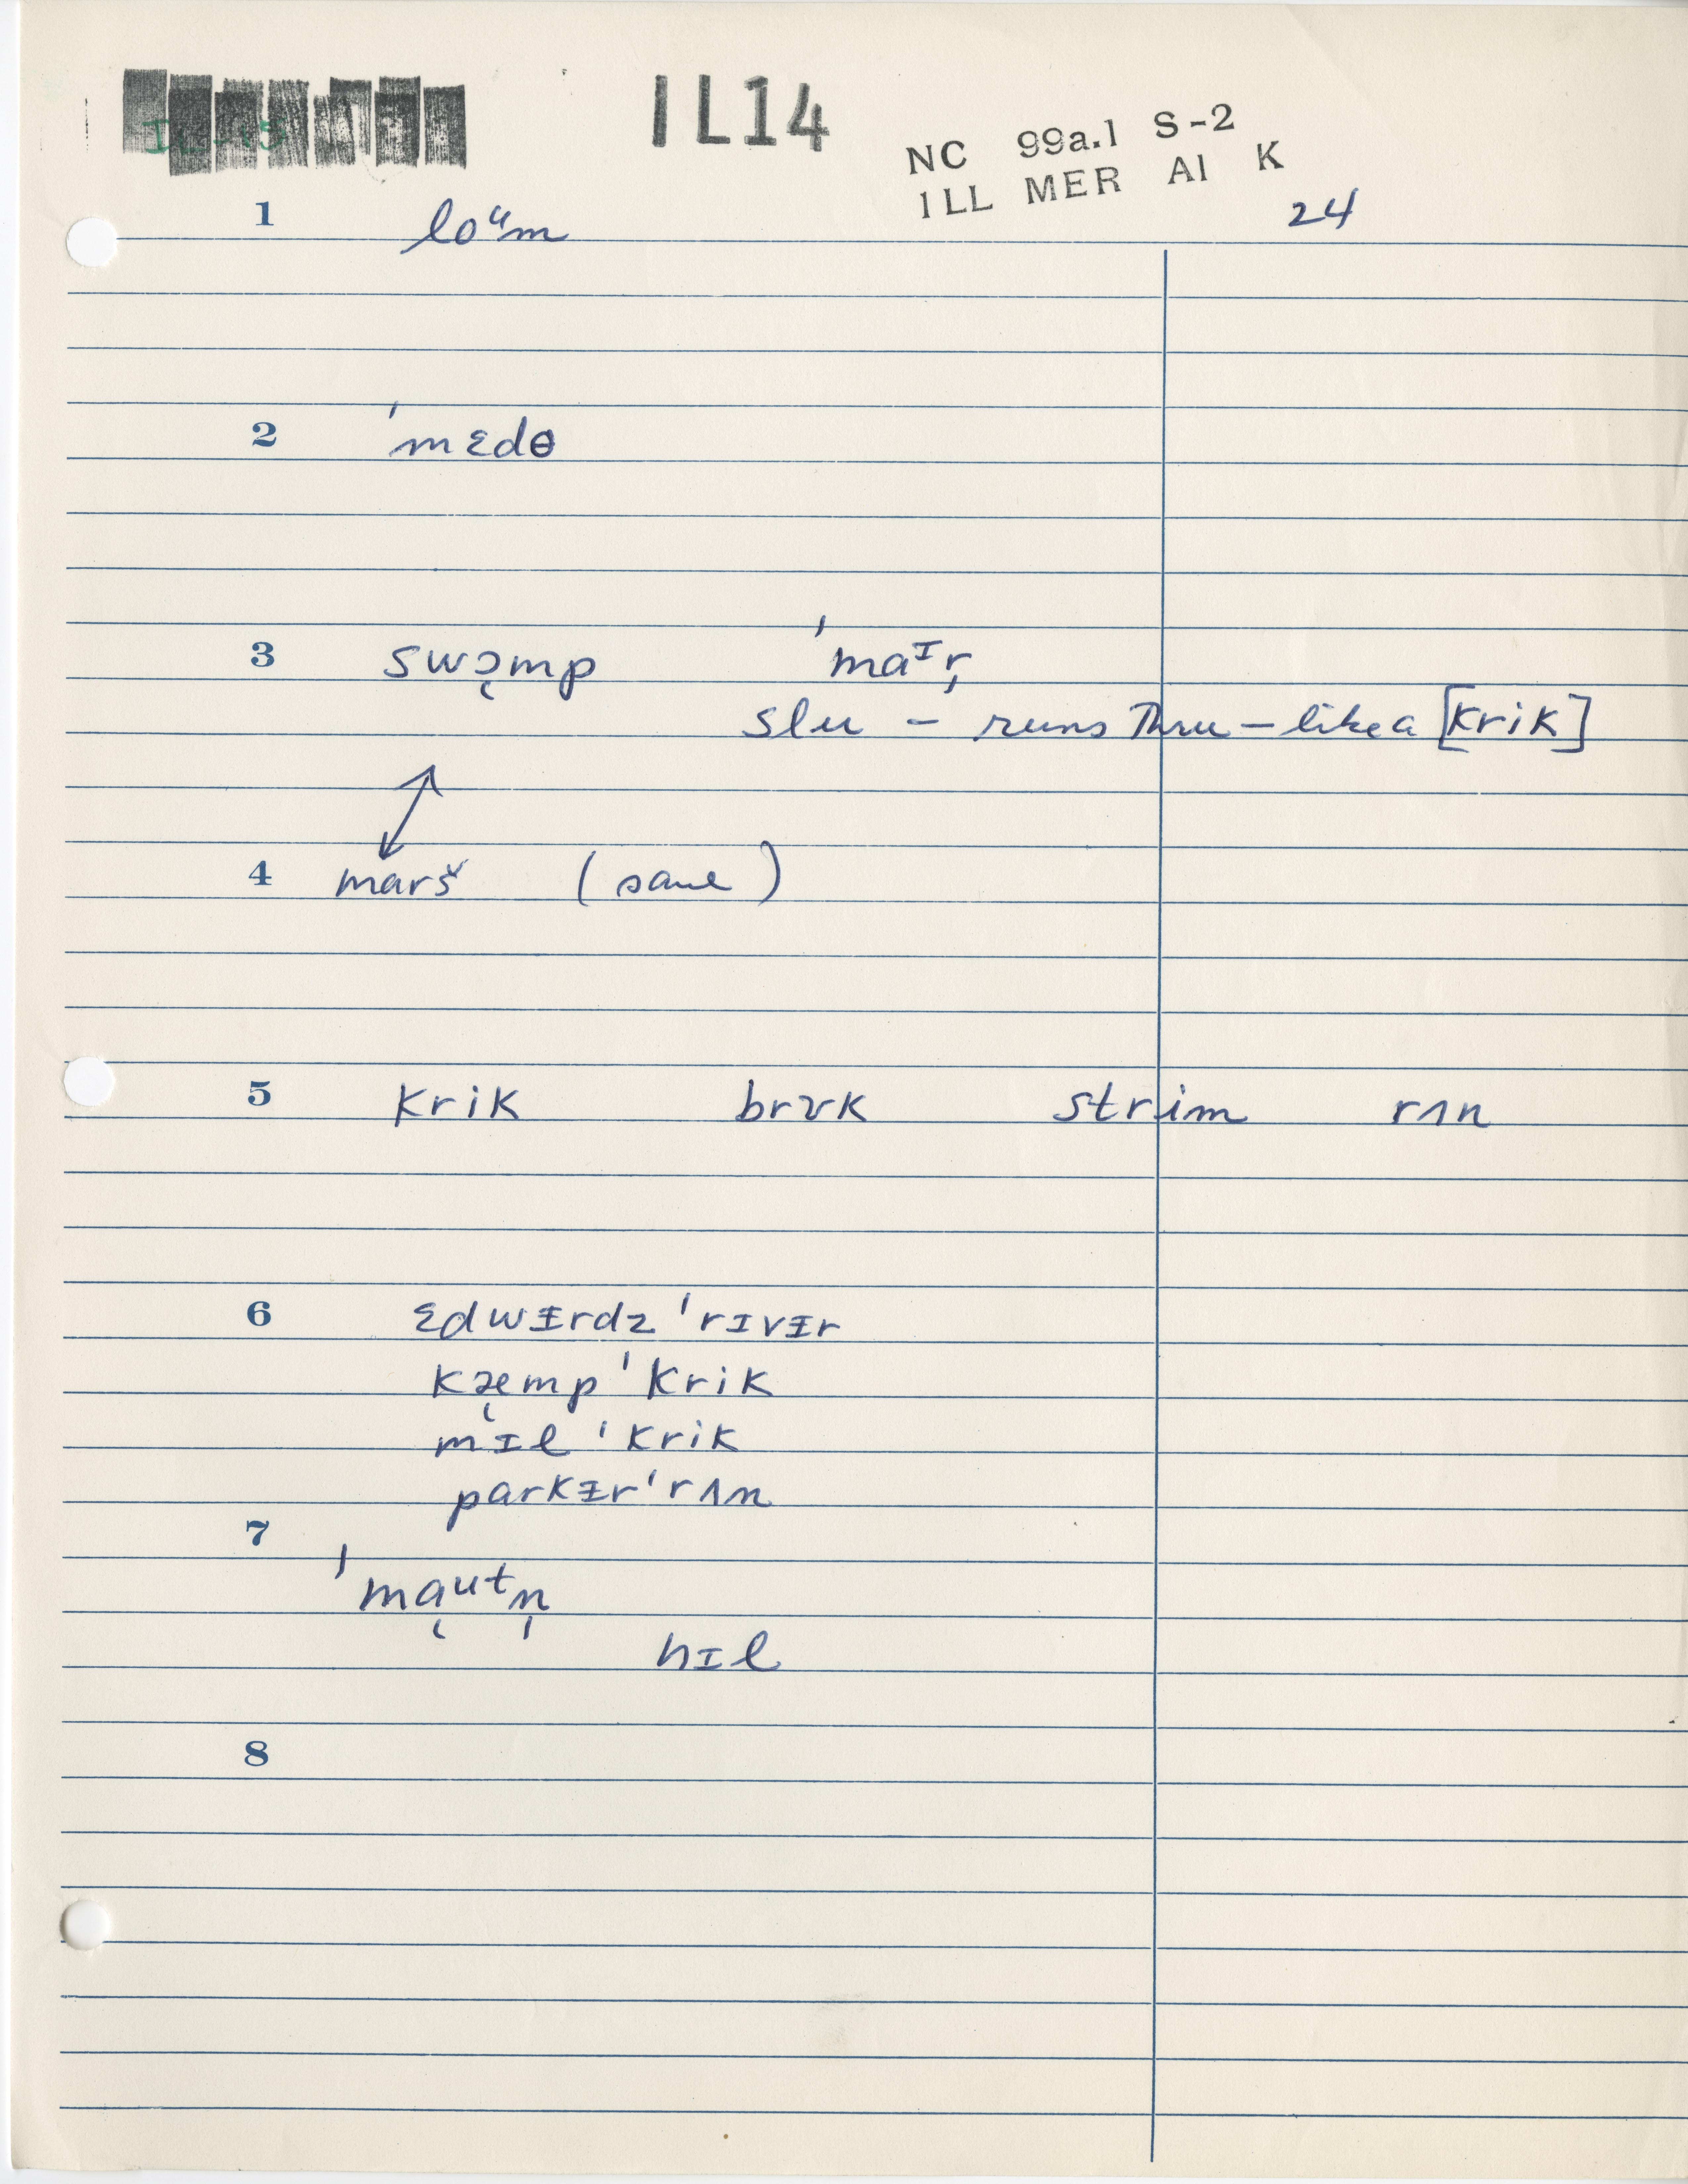 IL-15
IL14
NC 99a.1 S-2
ILL MER AI K
24
1 loᵘm
2 ˈmɛdɵ
3 swɔ̨mp ˈmaᶦr̩
slu – runs thru – like a [krik]
4 marš (same)
5 krik brʊk strim rʌn
6 ɛdwᵻrdz ˈrɪvᵻr
kæ̨mp ˈkrik
mɪl ˈkrik
parkᵻr ˈrʌn
7
ˈmą​ᵘᵗn̩
hɪl
8